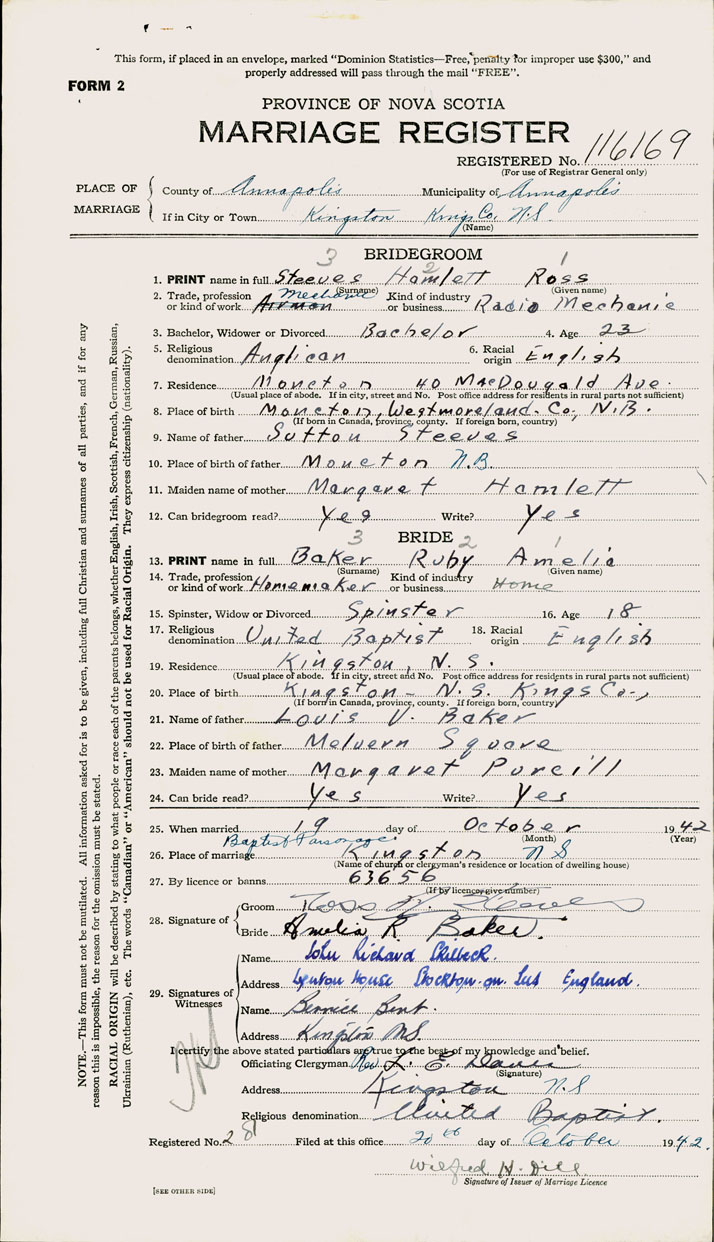 This form, if placed in an envelope, marked "Dominion Statistics—Free, penalty for improper use $300," and
properly addressed will pass through the mail "FREE".
FORM 2
PROVINCE OF NOVA SCOTIA
MARRIAGE REGISTER
REGISTERED No. 116169
(For use of Registrar General only)
PLACE OF MARRIAGE
County of Annapolis Municipality of Annapolis
If in City or Town Kingston Kings Co, N.S.
(Name)
3 BRIDEGROOM 1
1. PRINT name in full Steeves Hamlett Ross
2
(Surname) (Given name)
2. Trade, profession or kind of work Airman Mechanic Kind of industry or business Radio Mechanic
3. Bachelor, Widower or Divorced Bachelor 4. Age 23
5. Religious denomination Anglican 6. Racial origin English
7. Residence Moncton 40 MacDougald Ave.
(Usual place of abode. If in city, street and No. Post office address for residents in rural parts not sufficient)
8. Place of birth Moncton, Westmoreland. Co, N.B.
(If born in Canada, province, county. If foreign born, country)
9. Name of father Sutton Steeves
10. Place of birth of father Moncton N.B.
11. Maiden name of mother Margaret Hamlett
12. Can bridegroom read? Yes Write? Yes
BRIDE
3 2 1
13. PRINT name in full Baker Ruby Amelia
(Surname) (Given name)
14. Trade, profession or kind of work Homemaker Kind of industry or business Home
15. Spinster, Widow or Divorced Spinster 16. Age 18
17. Religious denomination United Baptist 18. Racial origin English
19. Residence Kingston, N. S.
(Usual place of abode. If in city, street and No. Post office address for residents in rural parts not sufficient)
20. Place of birth Kingston - N.S. Kings Co.,
(If born in Canada, province, county. If foreign born, country)
21. Name of father Louis V. Baker
22. Place of birth of father Melvern Square
23. Maiden name of mother Margaret Purcill
24. Can bride read? Yes Write? Yes
25. When married 19 day of October 1942
(Month) (Year)
Baptist Parsonage
26. Place of marriage Kingston N S
(Name of church or clergyman's residence or location of dwelling house)
27. By licence or banns 63656
(If by licence, give number)
28. Signature of
Groom Ross H. Steeves
Bride Amelia R. Baker.
29. Signatures of Witnesses
Name John Richard Skilbeck.
Address House Stockton-on-Tees England.
Name Bernice Bent.
Address Kingston N.S.
I certify the above stated particulars are true to the best of my knowledge and belief.
Officiating Clergyman Rev L. E.
(Signature)
Address Kingston N.S
Religious denomination United Baptist.
Registered No. 28 Filed at this office 20th day of October 1942.
Wilfred H. Hill
Signature of Issuer of Marriage Licence
[SEE OTHER SIDE]
NOTE.—This form must not be mutilated. All information asked for is to be given, including full Christian and surnames of all parties, and if for any
reason this is impossible, the reason for the omission must be stated.
RACIAL ORIGIN will be described by stating to what people or race each of the parents belongs, whether English, Irish, Scottish, French, German, Russian,
Ukrainian (Ruthenian), etc. The words "Canadian" or "American" should not be used for Racial Origin. They express citizenship (nationality).